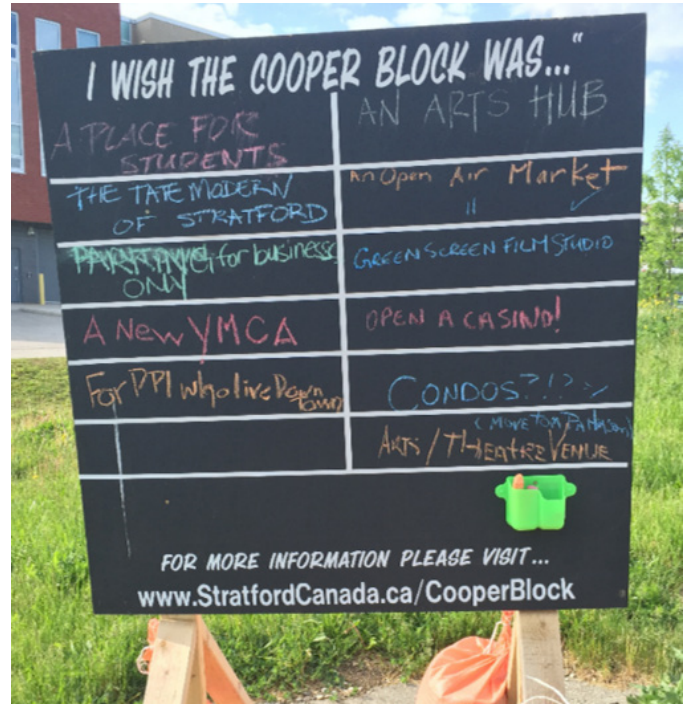 I WISH THE COOPER BLOCK WAS..."
A PLACE FOR
STUDENTS
THE TATE MODERN
OF STRATFORD
PARKING for business
ONLY
A New YMCA
For PPl who live Down
town
AN ARTS HUB
An Open Air Market
"
GREEN SCREEN FILM STUDIO
OPEN A CASINO!
CONDOS?!?
(MOVE TOM PATTERSON)
ARTS/THEATRE VENUE
FOR MORE INFORMATION PLEASE VISIT...
www.StratfordCanada.ca/CooperBlock